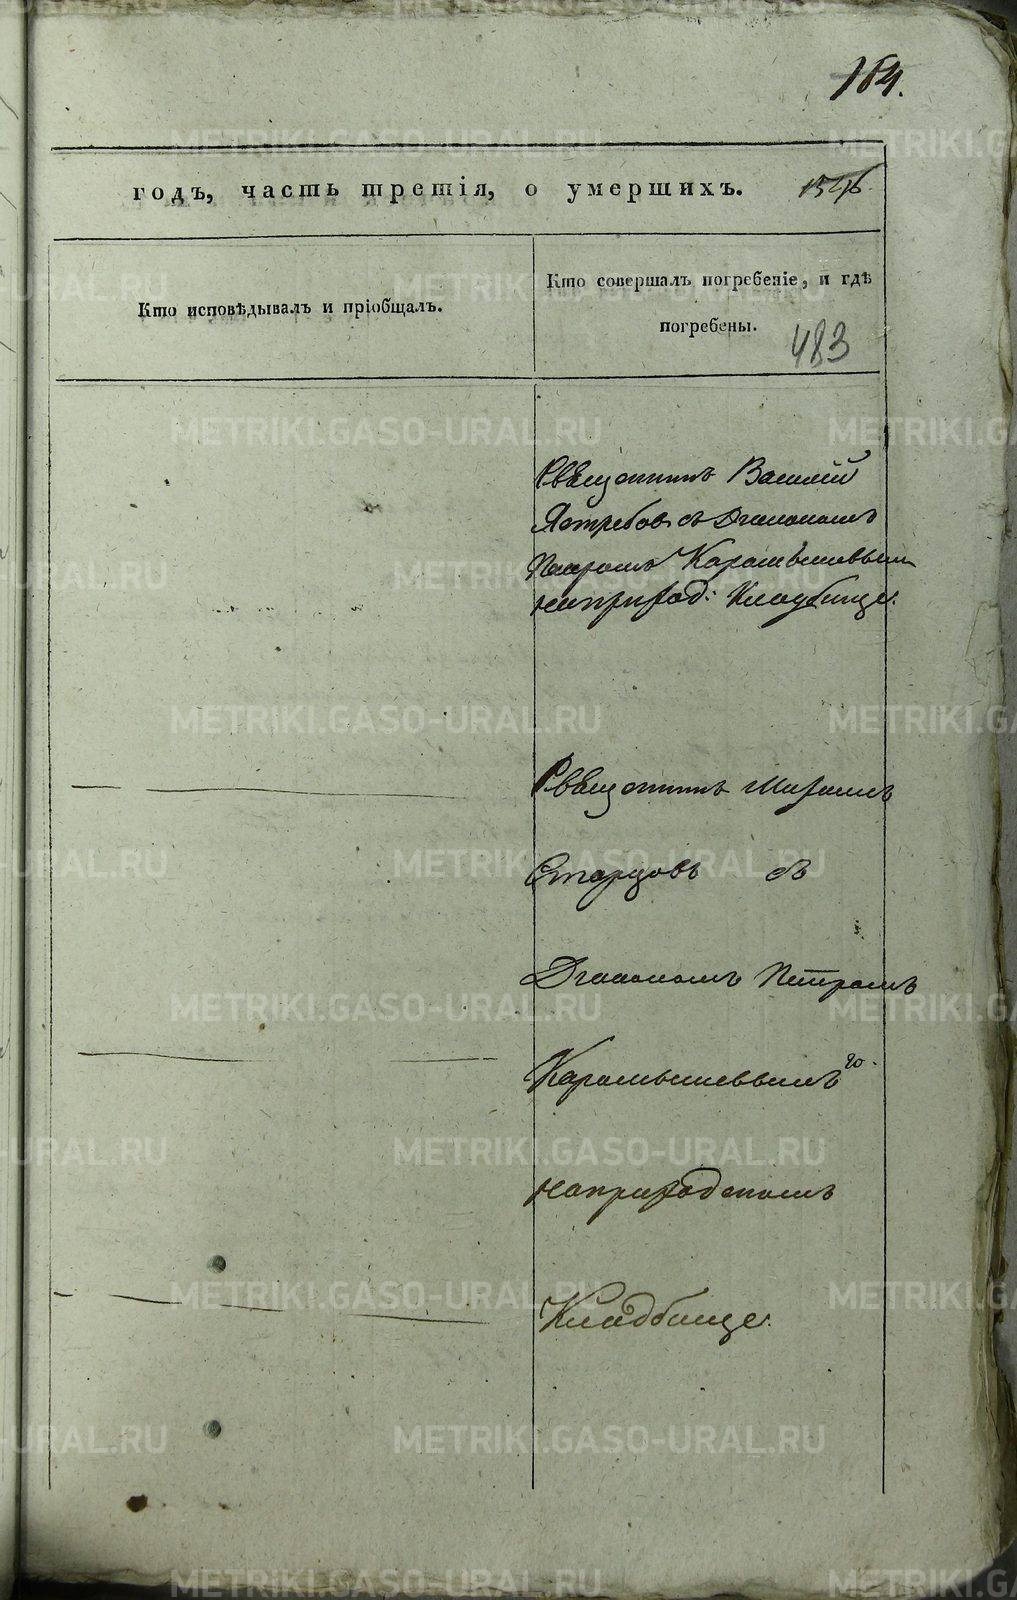 164.
годъ, часть третія, о умершихъ. 1546.
Кто исповѣдывалъ и пріобщалъ.
Кто совершалъ погребеніе, и гдѣ
погребены.
483
Священникъ Василій
Ястребовъ съ Діакономъ
Петромъ Карамышевымъ
на приход: Кладбище.
Священникъ Михаилъ
Старцовъ съ
Діакономъ Петромъ
Карамышевымъ
на приходскомъ
Кладбище.
METRIKI.GASO-URAL.RU